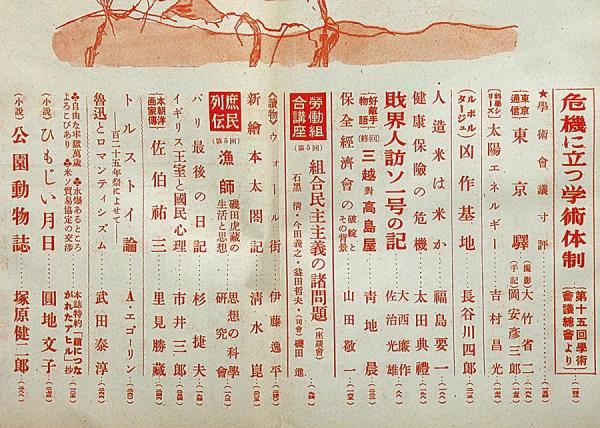 危機に立つ学術体制 第十五回學術會議總會より
★學術會議寸評
東京通信 東京驛 撮影 大竹省二 手記 岡安彦三郎
科學シリーズ 太陽エネルギー 吉村昌光
ルポルタージュ 凶作基地 長谷川四郎
人造米は米か 福島要一
健康保險の危機 太田典禮
財界人訪ソ一号の記 大西廉作 佐治光雄
好敵手物語 終回 三越對高島屋 青地晨
保全經濟會の破綻とその背景 山田敬一
勞働組合講座 第5回 組合民主主義の諸問題 (座談會)
石黒清・今田義之・益田哲夫・(司會)磯田進
讀物 ウォール街 伊藤逸平
新繪本太閤記 清水崑
庶民列伝 第5回 漁師 磯田虎蔵の生活と思想 思想の科學研究會
パリ最後の日記 杉捷夫
イギリス王室と國民心理 市井三郎
本朝洋画家傳 佐伯祐三 里見勝藏
トルストイ論 ―百二十五年祭によせて A・エゴーリン
魯迅とロマンティシズム 武田泰淳
♣自由な牢獄萬歳 ♣水爆あるところよろこびあり ♣米ソ貿易協定の交渉
本誌特約「鎖につながれたアヒル」抄
(小説) ひもじい月日 圓地文子
(小説) 公園動物誌 塚原健二郎